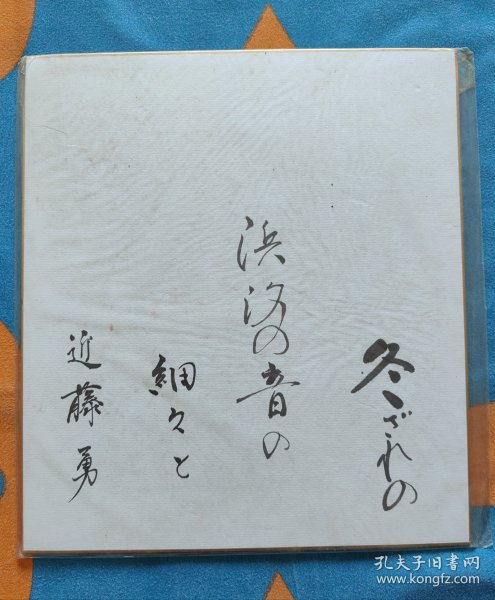 冬ざれの
浜汐の音の
細々と
近藤勇
孔夫子旧书网
www.kongfz.com